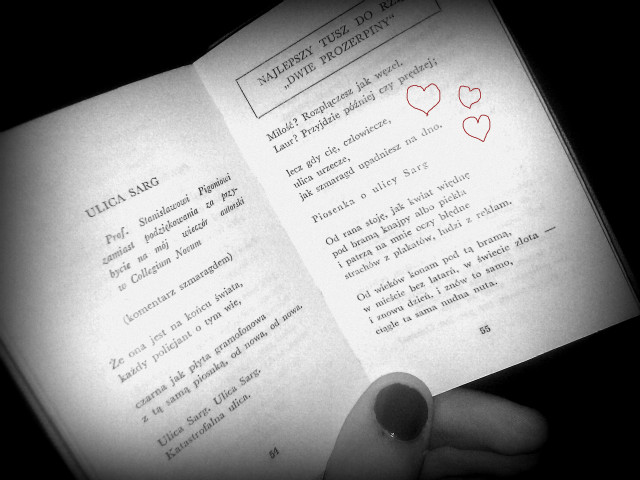 ULICA SARG
Prof. Stanisławowi Pigoniowi
zamiast podziękowania za przy-
bycie na mój wieczór autorski
w Collegium Novum
(komentarz szmaragdem)
Że ona jest na końcu świata,
każdy policjant o tym wie,
czarna jak płyta gramofonowa
z tą samą piosnką, od nowa, od nowa.
Ulica Sarg. Ulica Sarg.
Katastrofalna ulica.
54
NAJLEPSZY TUSZ DO RZ
„DWIE PROZERPINY“
Miłość? Rozplączesz jak węzeł.
Laur? Przyjdzie później czy prędzej;
lecz gdy cię, człowiecze,
ulica urzecze,
jak szmaragd upadniesz na dno.
Piosenka o ulicy Sarg
Od rana stoję, jak kwiat więdnę
pod bramą knajpy albo piekła
i patrzą na mnie oczy błędne
strachów z plakatów, ludzi z reklam.
Od wieków konam pod tą bramą,
w mieście bez latarń, w świecie zlota —
i znowu dzień, i znów to samo,
ciągle ta sama nudna nuta.
55